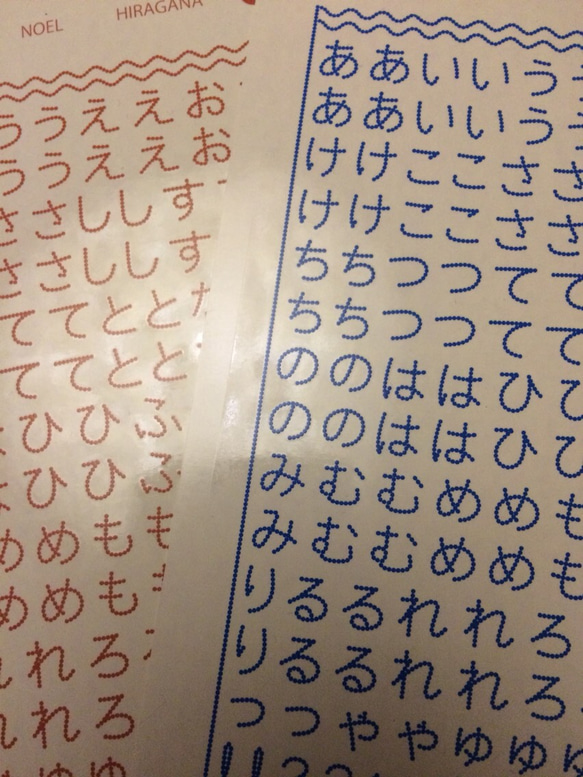 NOEL HIRAGANA
う う え え お
う う え え お
さ さ し し す
さ さ し し す
て て と と
て て と と
ひ ひ ふ
ひ ひ ふ
め め も も
め め も
れ れ ろ
れ れ ろ
ゆ ゆ
あ あ い い う
あ あ い い う
け け こ こ さ さ
け け こ こ さ さ
ち ち つ つ て て
ち ち つ つ て て
の の は は ひ ひ
の の は は ひ ひ
み む む め め も
み む む め め も
り る る れ れ ろ
り る る れ れ ろ
っ っ ゃ ゃ ゅ ゅ